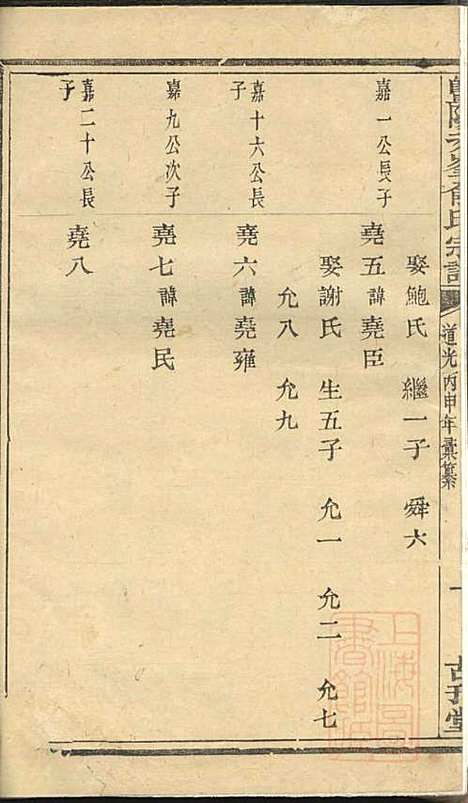 陽 氏宗譜 道光丙申年彙纂 一 古 堂
娶鮑氏 繼一子 舜六
嘉一公長子 堯五 諱堯臣
娶謝氏 生五子 允一 允二 允七
允八 允九
嘉十六公長子 堯六 諱堯雍
嘉九公次子 堯七 諱堯民
嘉二十公長子 堯八
上海圖書館藏